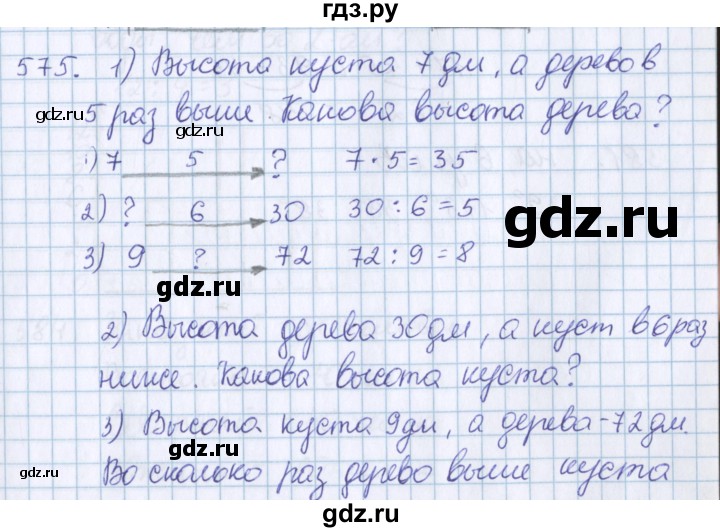 гдз.ру
575. 1) Высота куста 7 дм, а дерево в
gdz.ru
5 раз выше. Какова высота дерева?
gdz.ru
1) 7 5 ? 7·5=35
2) ? 6 30 30:6=5
gdz.ru
3) 9 ? 72 72:9=8
gdz.ru
2) Высота дерева 30 дм, а куст в 6 раз
ниже. Какова высота куста?
3) Высота куста 9 дм, а дерева-72 дм.
Во сколоко раз дерево выше куста
gdz.ru
gdz.ru